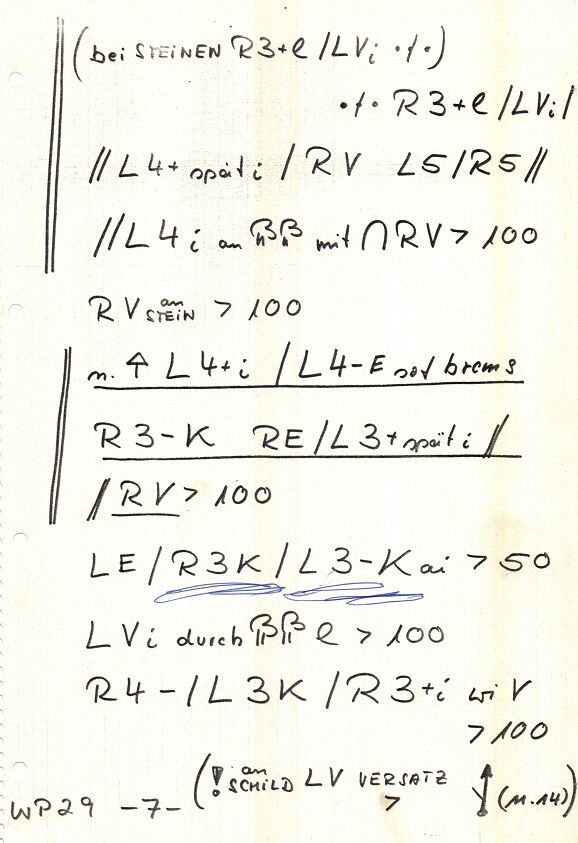 (bei STEINEN R3+e/LVi ·/·)
·/· R3+e/LVi/
//L4+ späti/RV L5/R5//
//L4i an mit ∩RV>100
RV an STEIN >100
n. ↑ L4+i/L4-E sof brems
R3-K RE/L3+späti//
//RV>100
LE/R3K/L3-Kai >50
LVi durch e >100
R4-/L3K/R3+i wiV
>100
(! an SCHILD LV VERSATZ > (n.14))
WP29 -7-